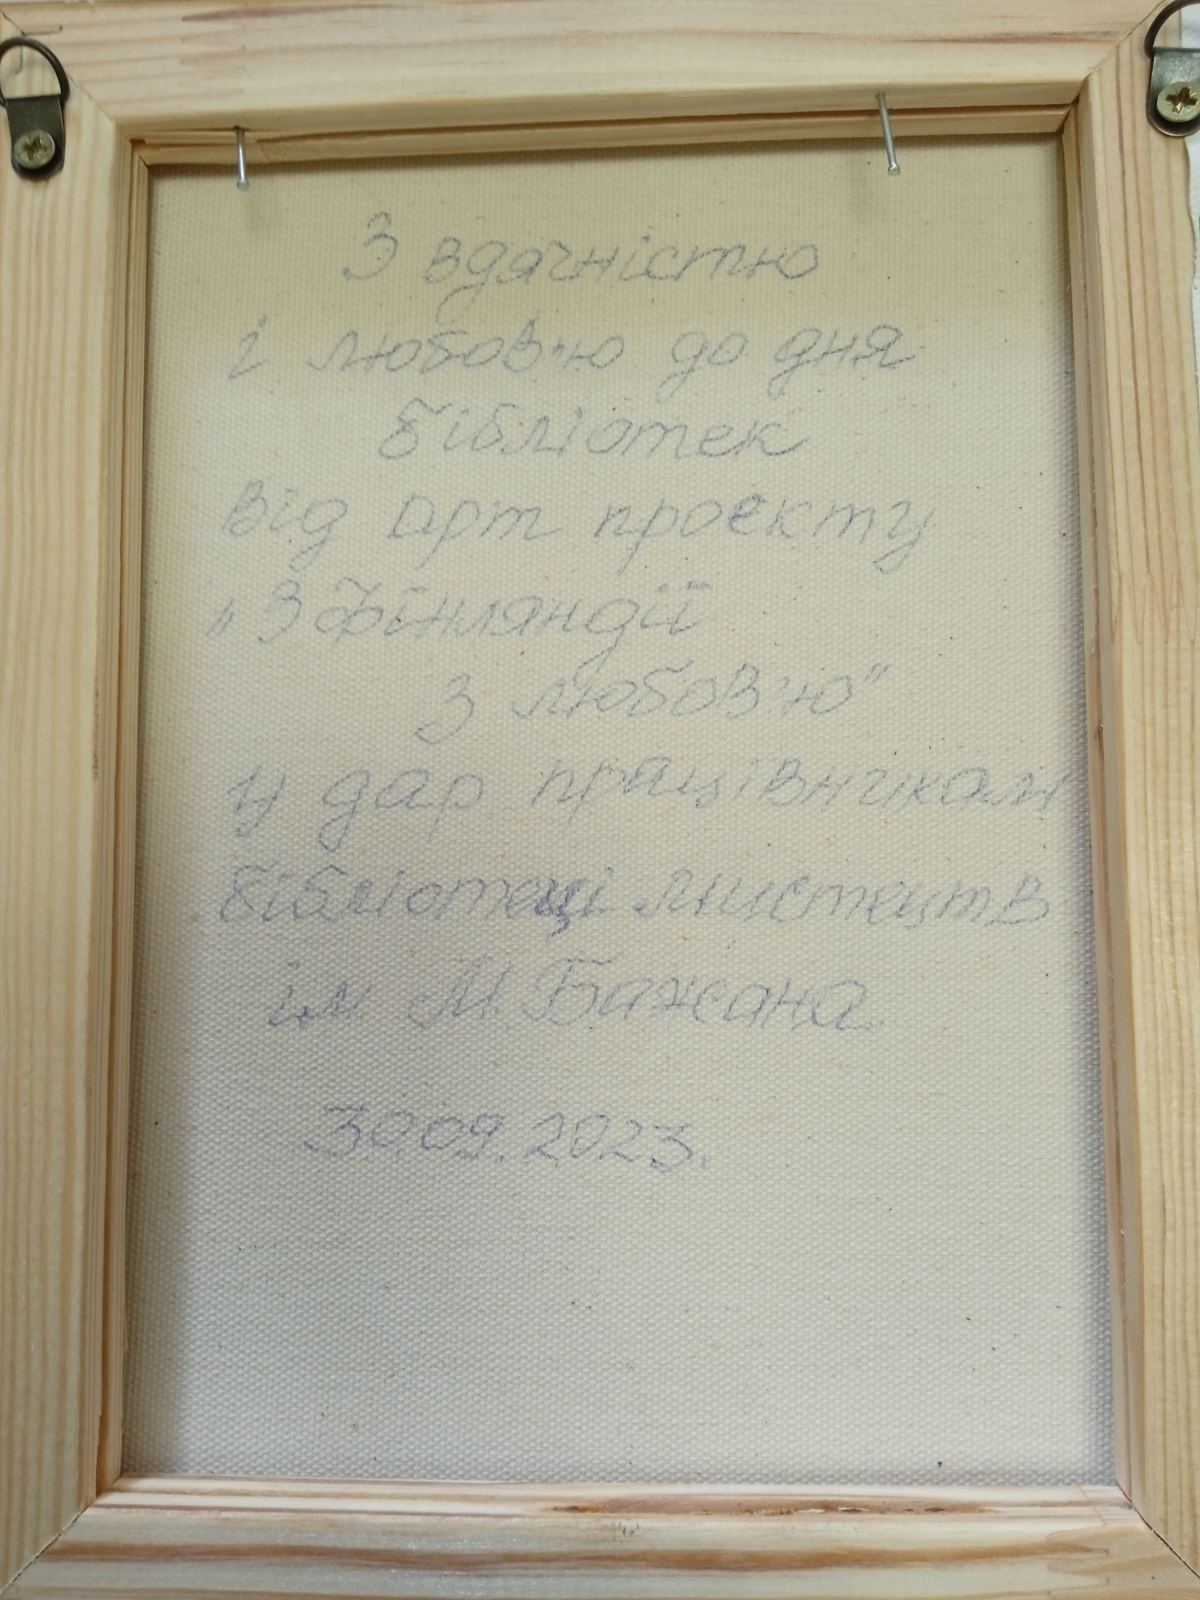 З вдячністю
і любов'ю до дня
бібліотек
Від арт проєкту
"З Фінляндії
з любов'ю"
у дар працівникам
бібліотеці мистецтв
ім М. Бажана
30.09.2023.